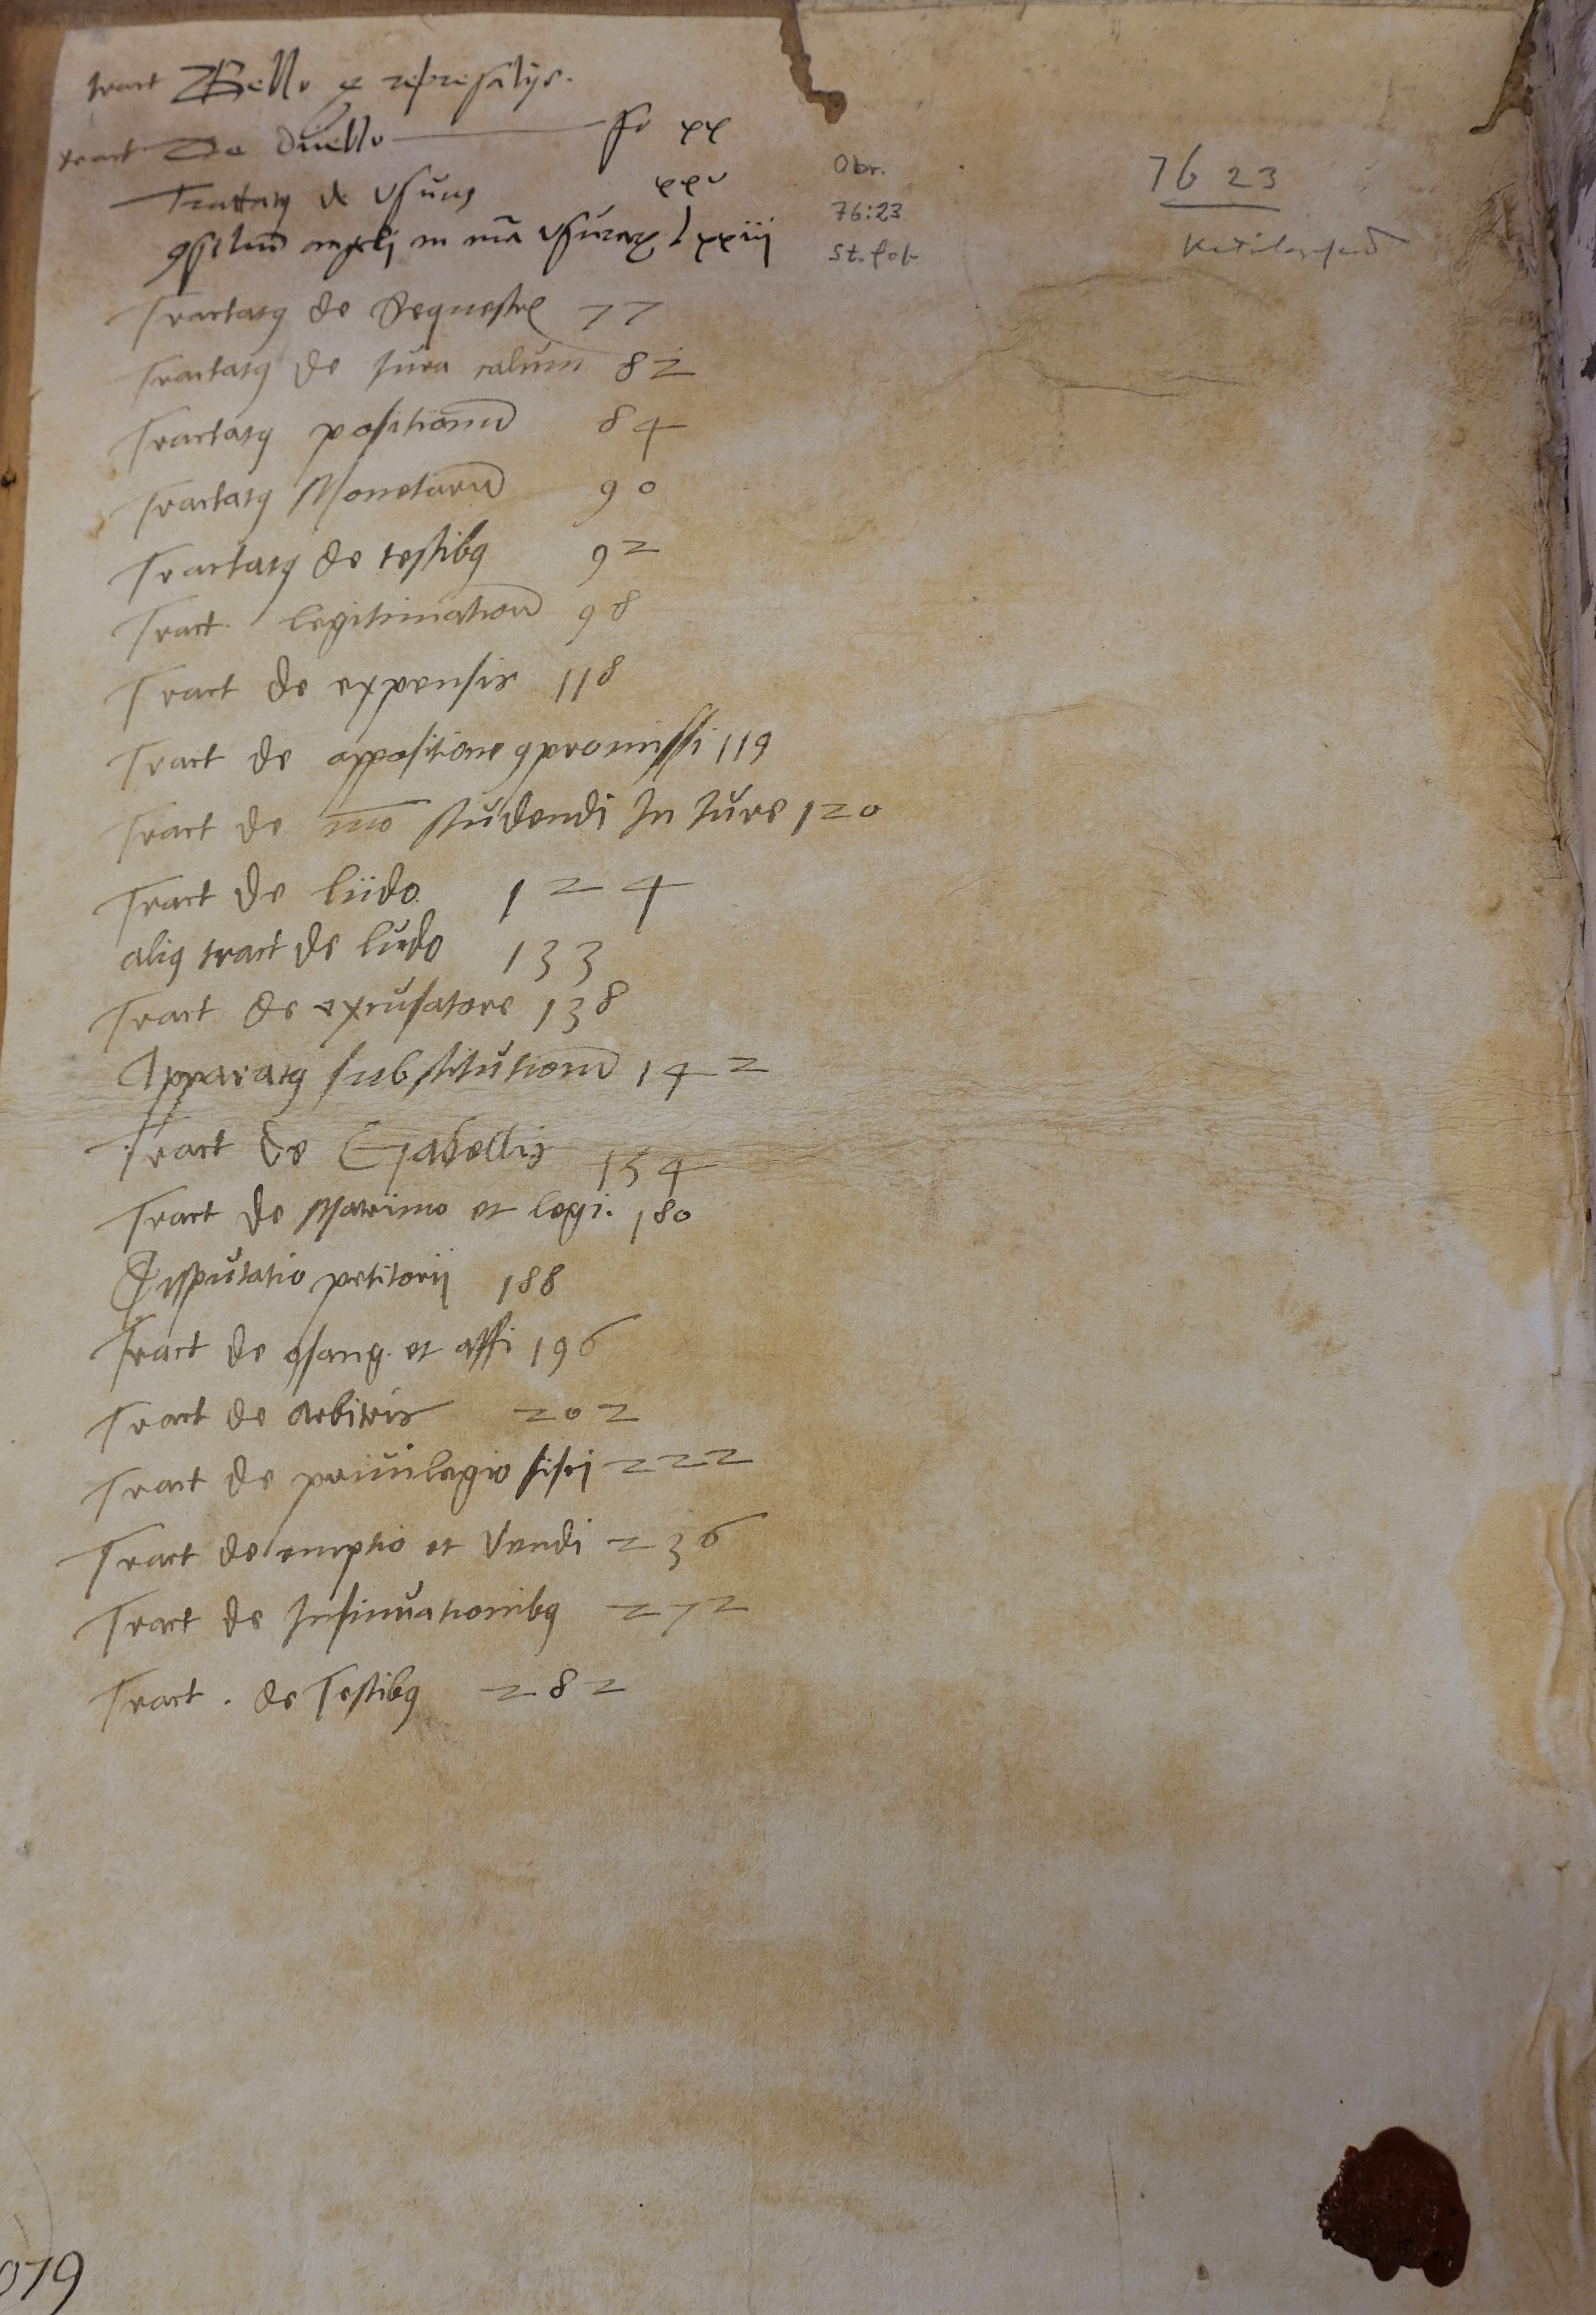 tract Bello et represalijs.
tract De Duello fo xx
Tractatꝰ de Vsuris xxv
ꝯsiliuꝫ angeli in mã vsuraꝝ lxxiij
Tractatꝰ de Sequestrꝭ 77
Tractatꝰ de Jura calum 82
Tractatꝰ positionũ 84
Tractatꝰ Monetarũ 90
Tractatꝰ de testibꝰ 92
Tract. legitimationũ 98
Tract de expensis 118
Tract de appositione ꝯpromissi 119
Tract de mõ studendi In Jure 120
Tract de ludo. 124
aliꝰ tract de ludo 133
Tract de excusatore 138
Apparatꝰ substitutionũ 142
Tract de Gabellis 154
Tract de Matrimo et legi. 180
Disputatio petitorij 188
Tract de ꝯsang. et affi 196
Tract de Arbitris 202
Tract de priuilegio fisci 222
Tract de emptio et Vendi 236
Tract de Insinuationibꝰ 272
Tract. de Testibꝰ 282
Obr.
76:23
St. fol.
76 23
079